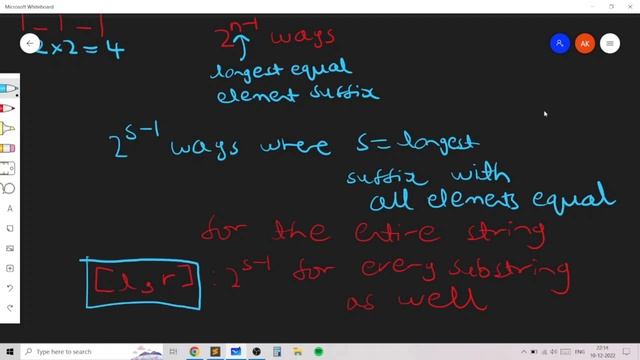 Microsoft Whiteboard
1 - 1 - 1
2 x 2 = 4
2^n-1 ways
longest equal
element suffix
AK
2^s-1 ways where s = longest
suffix with
all elements equal
for the entire string
[l, r] : 2^s-1 for every substring
as well
Type here to search
22:14
10-12-2022